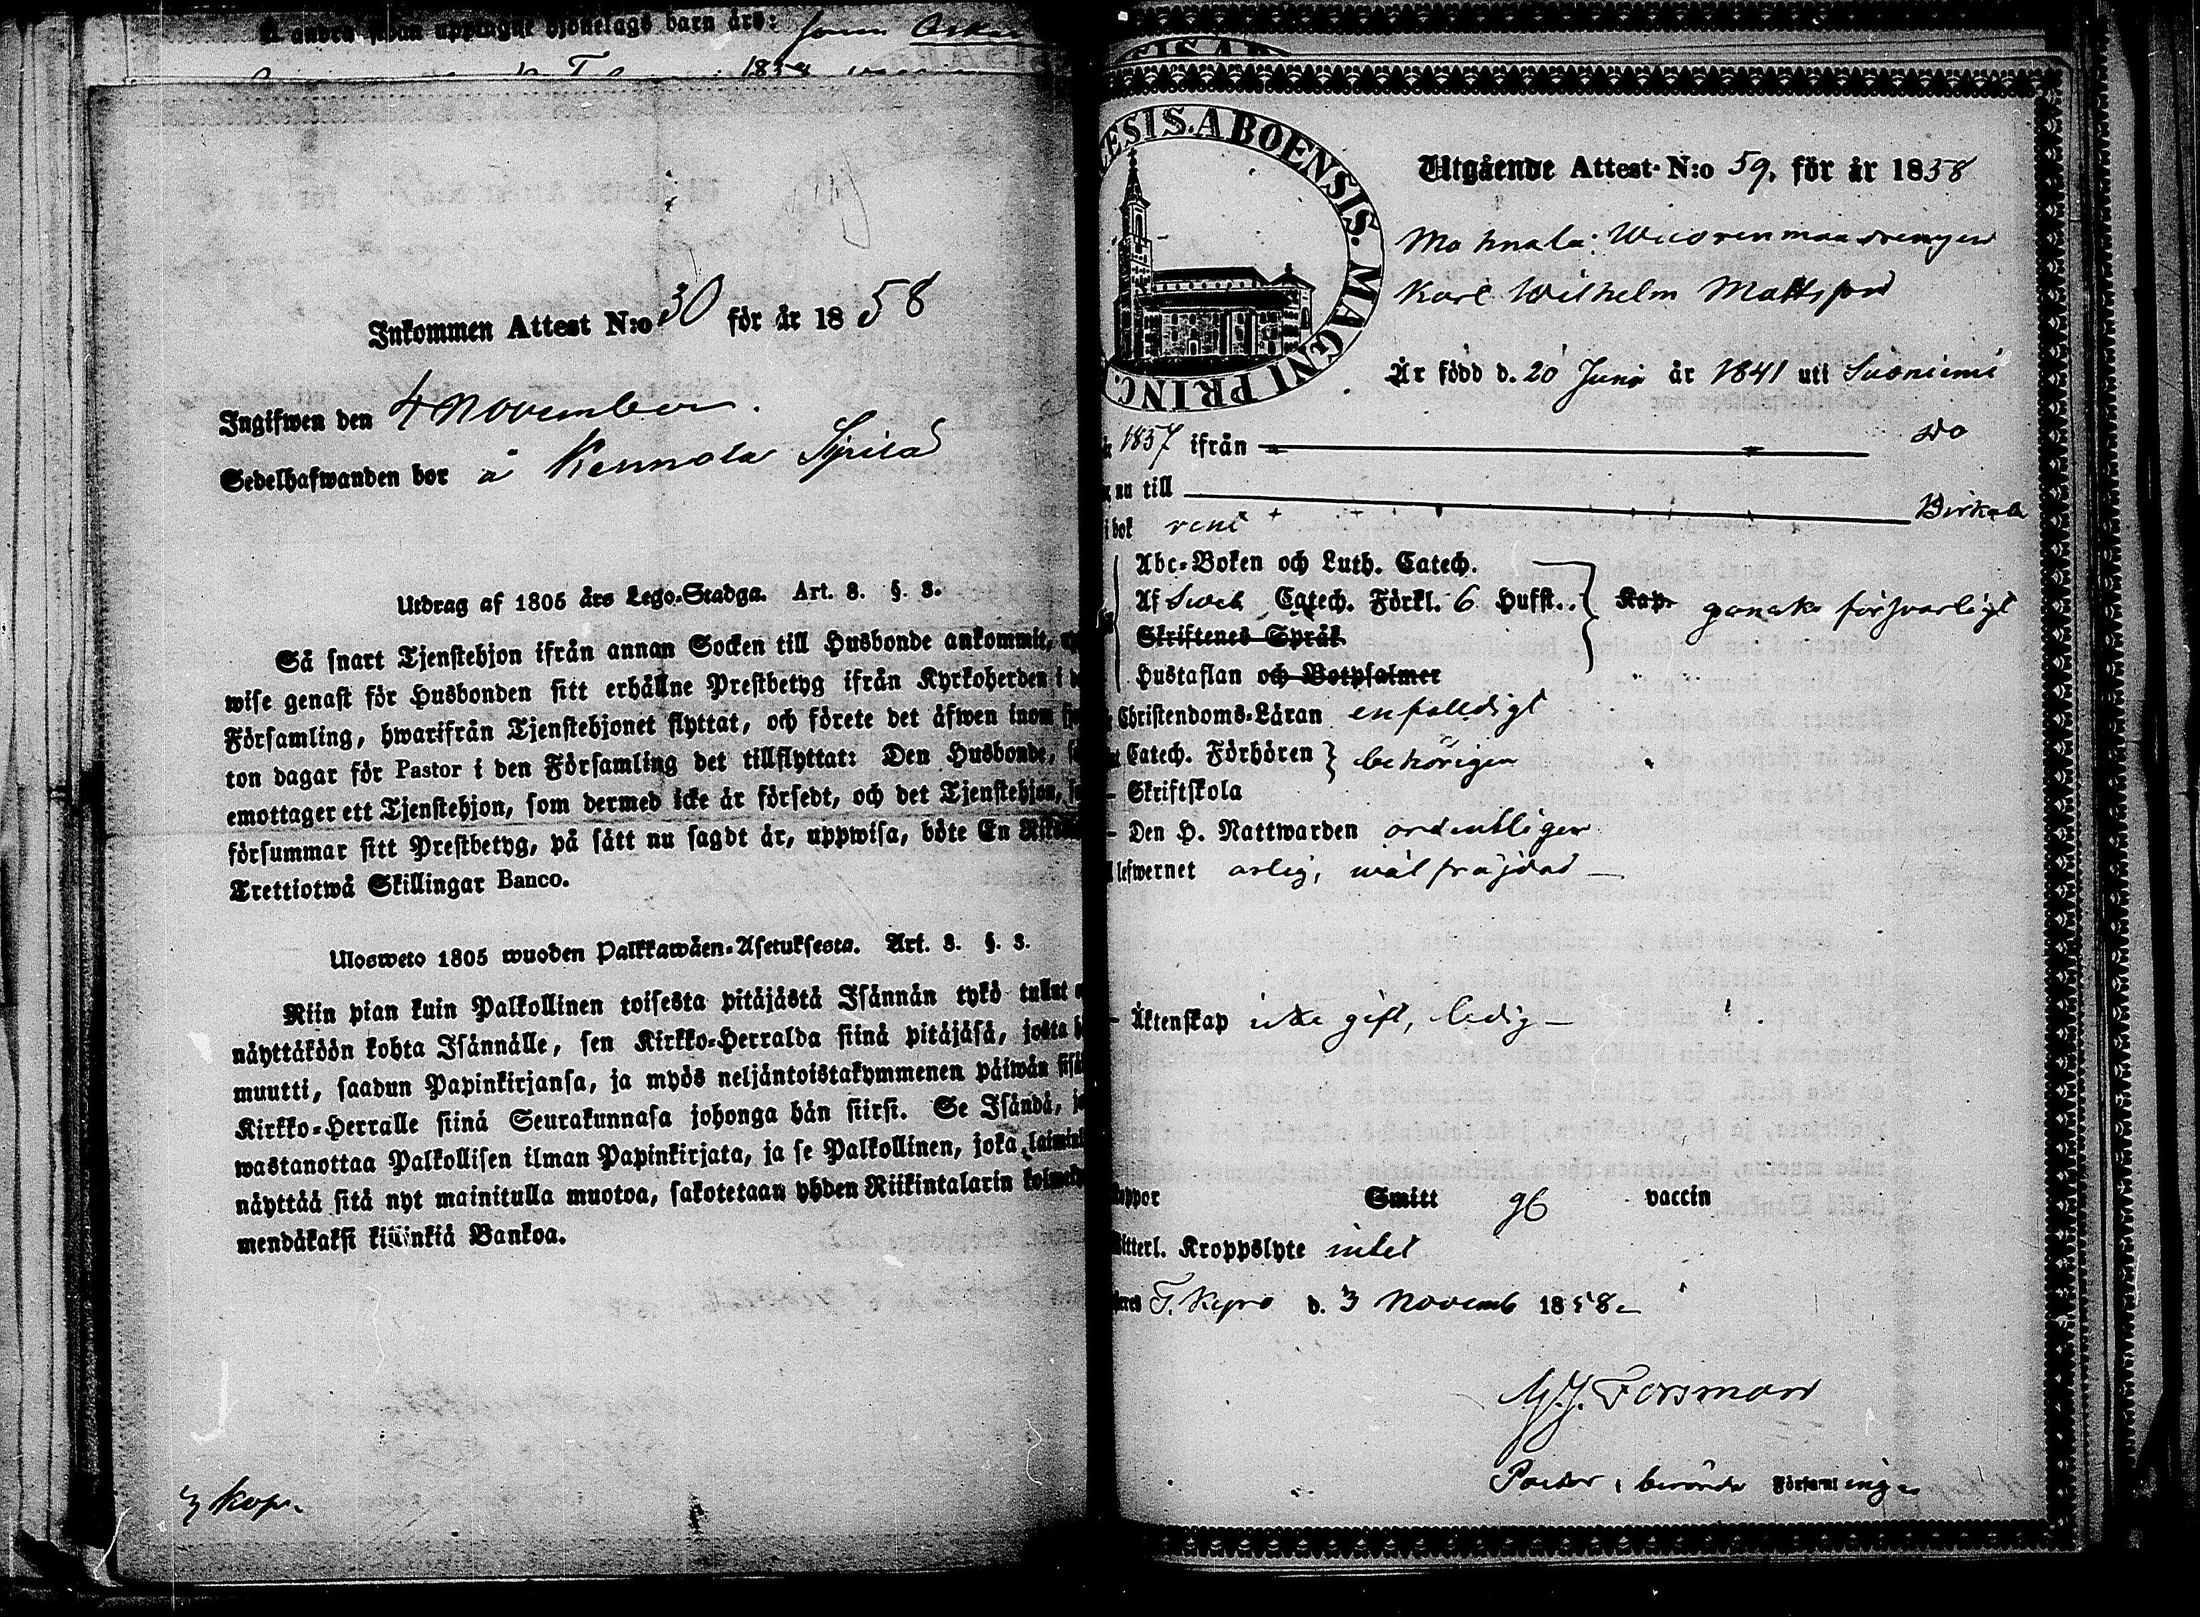 å andra sidan uppingne Hjonelags barn äro: sonen Oskar
Inkommen Attest N:o 30 för år 1858
Ingifwen den 4 November.
Sedelhafwanden bor å Kennola Spilä
Utdrag af 1805 års Lego-Stadga. Art. 3. §. 3.
Så snart Tjenstehjon ifrån annan Socken till Husbonde ankommit, upp
wise genast för Husbonden sitt erhållne Prestbetyg ifrån Kyrkoherden i
Församling, hwarifrån Tjenstehjonet flyttat, och förete det äfwen inom
ton dagar för Pastor i den Församling det tillflyttat: Den Husbonde,
emottager ett Tjenstehjon, som dermed icke är försedt, och det Tjenstehjon,
försummar sitt Prestbetyg, på sätt nu sagdt är, uppwisa, böte En Riksdaler
Trettiotwå Skillingar Banco.
Ulosweto 1805 wuoden Palkkawäen-Asetuksesta. Art. 3. §. 3.
Niin pian kuin Palkollinen toisesta pitäjästä Isännän tykö tullut
näyttäköön kohta Isännälle, sen Kirkko-Herralda siinä pitäjäsä, josta
muutti, saadun Papinkirjansa, ja myös neljäntoistakymmenen päiwän sisä
Kirkko-Herralle siinä Seurakunnasa johonga hän siirsi. Se Isändä,
wastanottaa Palkollisen ilman Papinkirjata, ja se Palkollinen, joka laimin
näyttää sitä nyt mainitulla muotoa, sakotetaan yhden Riikintalarin kolme
mendäkaksi killinkiä Bankoa.
3 kop.
ESIS. ABOENSIS. MAGNI PRINC.
Utgående Attest N:o 59, för år 1858
Mahnala: Wuorenmaa drengen
Karl Wilhelm Mattsson
Är född d. 20 Juni år 1841 uti Suoniemi
1857 ifrån do
nu till Birkala
i bok rent
Abc-Boken och Luth. Catech.
Af Sweb. Catech. Förkl. 6 Hufst. Kap. ganska försvarligt
Skriftenes Språk
Hustaflan och Botpsalmer
Christendoms-Läran enfalldigt
Catech. Förhören behörigen
- Skriftskola
- Den H. Nattwarden ordentligen
lefwernet ärlig, wäl fräjdad —
- Äktenskap icke gift, ledig —
koppor Smitt gb vaccin
Witterl. Kroppslyte intet
T. Kyro d. 3 Novemb 1858
Forsman
Pastor i berörde Församlingen